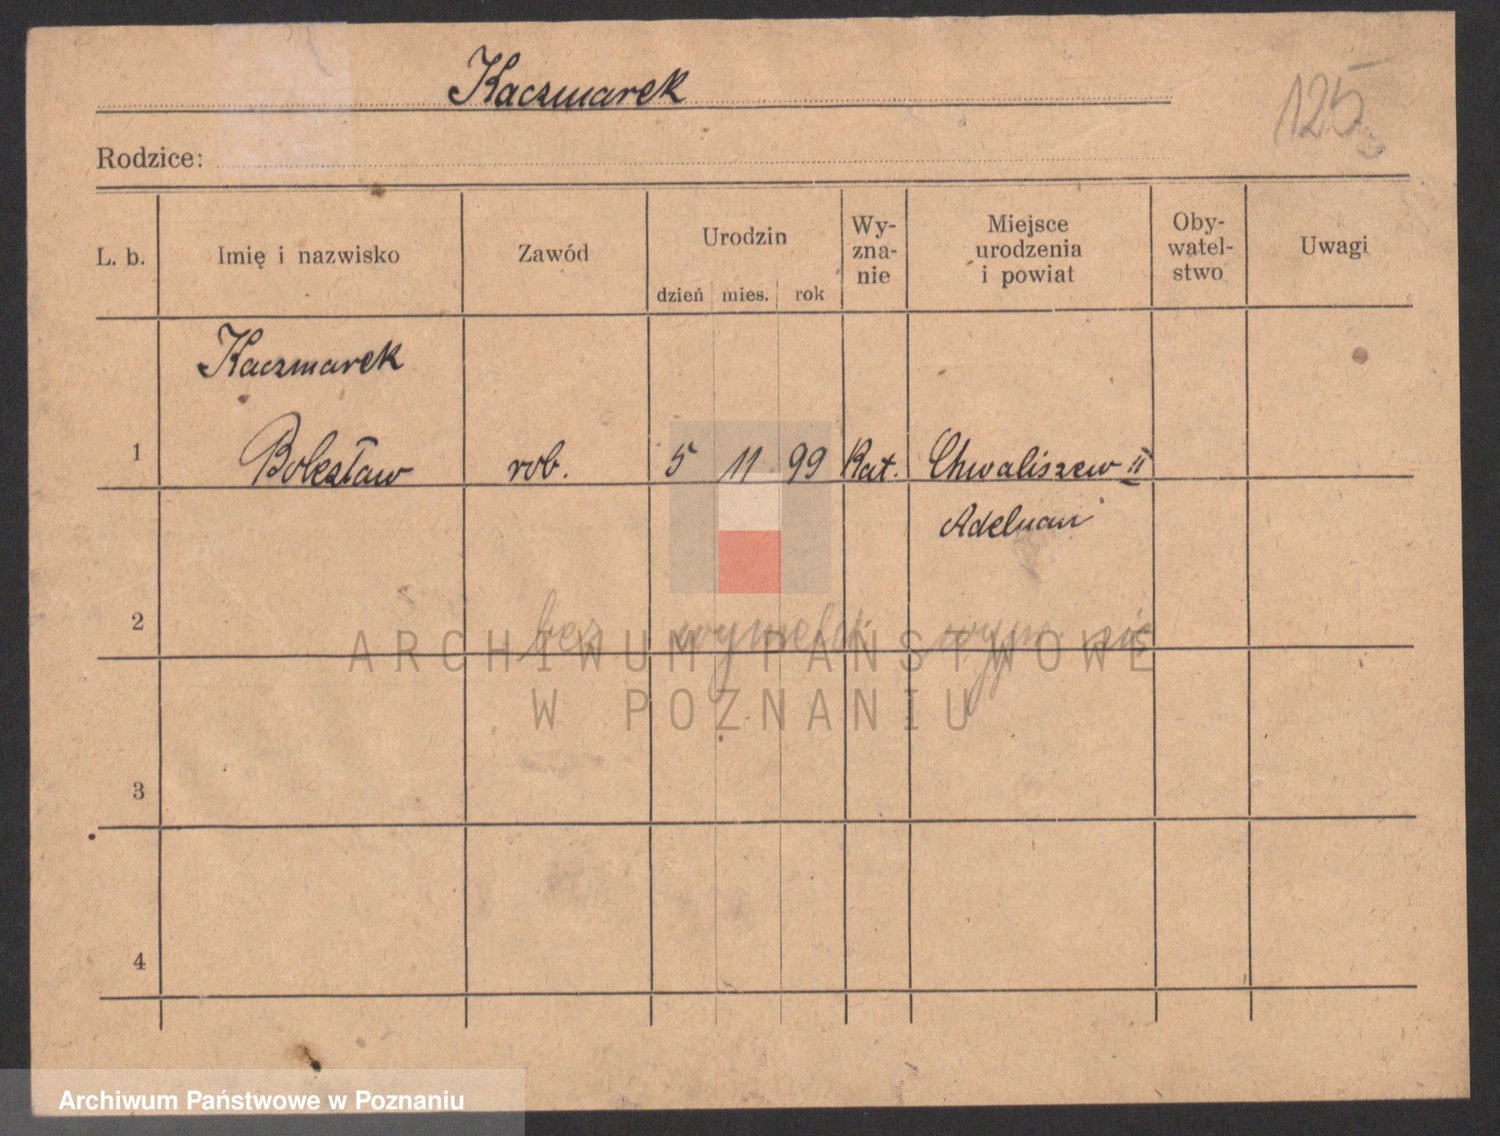 Kaczmarek
125
Rodzice:
L. b. Imię i nazwisko Zawód Urodzin dzień mies. rok Wy-zna-nie Miejsce urodzenia i powiat Oby-watel-stwo Uwagi
Kaczmarek
1 Bolesław rob. 5 11 99 Kat. Chwaliszew II
Adelnau
2 bez
ARCHIWUM PAŃSTWOWE
W POZNANIU
3
4
Archiwum Państwowe w Poznaniu